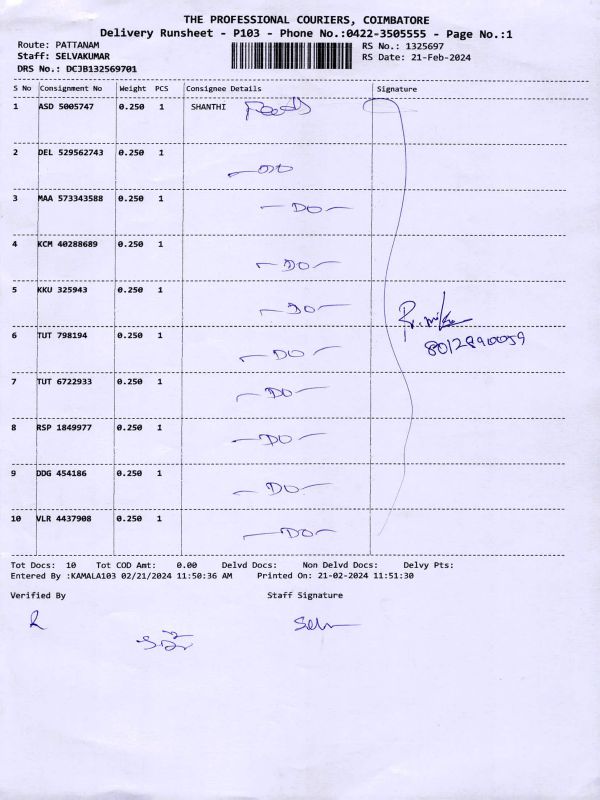 THE PROFESSIONAL COURIERS, COIMBATORE
Delivery Runsheet - P103 - Phone No.:0422-3505555 - Page No.:1
Route: PATTANAM RS No.: 1325697
Staff: SELVAKUMAR RS Date: 21-Feb-2024
DRS No.: DCJB132569701
S No Consignment No Weight PCS Consignee Details Signature
1 ASD 5005747 0.250 1 SHANTHI Feeds
2 DEL 529562743 0.250 1 - DO -
3 MAA 573343588 0.250 1 - DO -
4 KCM 40288689 0.250 1 - DO -
5 KKU 325943 0.250 1 - DO -
6 TUT 798194 0.250 1 - DO -
8012890059
7 TUT 6722933 0.250 1 - DO -
8 RSP 1849977 0.250 1 - DO -
9 DDG 454186 0.250 1 - DO -
10 VLR 4437908 0.250 1 - DO -
Tot Docs: 10 Tot COD Amt: 0.00 Delvd Docs: Non Delvd Docs: Delvy Pts:
Entered By :KAMALA103 02/21/2024 11:50:36 AM Printed On: 21-02-2024 11:51:30
Verified By Staff Signature